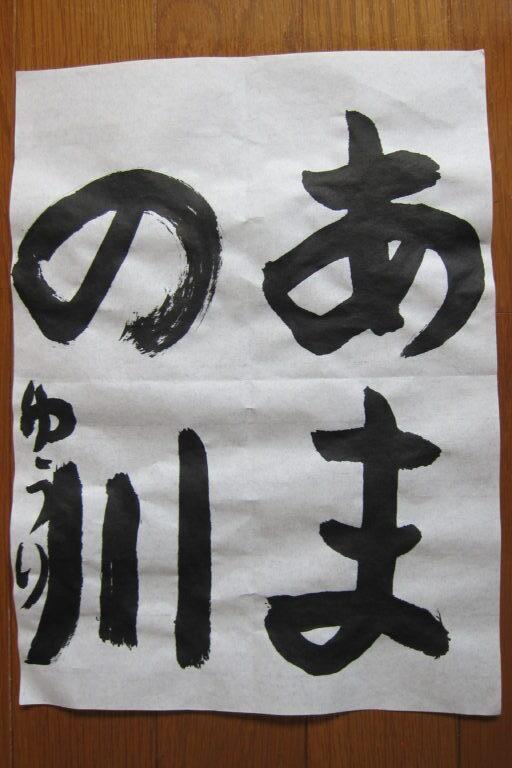 あま
の川
ゆうり